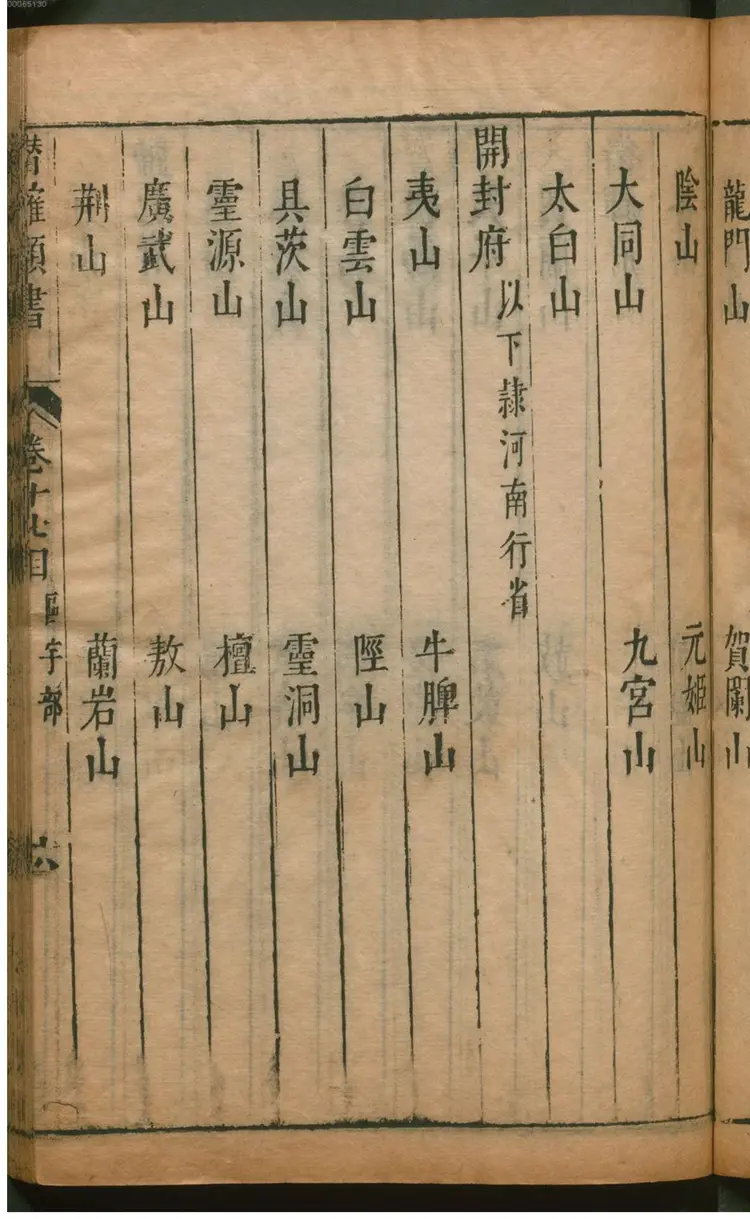 00065130
龍門山 賀闌山
陰山 元姬山
大同山 九宮山
太白山
開封府以下隷河南行省
夷山 牛脾山
白雲山 陘山
具茨山 靈洞山
靈源山 檀山
廣武山 敖山
荆山 蘭岩山
潛確類書 卷十七目 區宇部 六